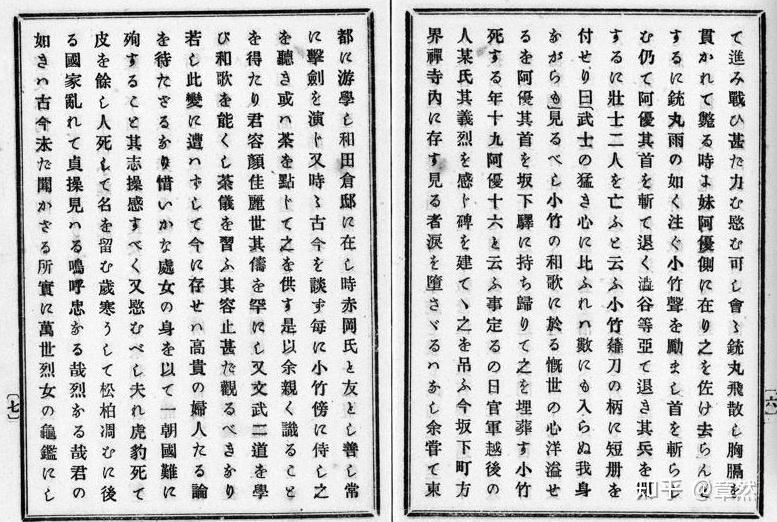 て進み戰ひ甚た力む愍む可し會〻銃丸飛散し胸膈を
貫かれて斃る時よ妹阿優側に在り之を佐け去らんと
するに銃丸雨の如く注ぐ小竹聲を勵まし首を斬らし
む仍て阿優其首を斬て退く澁谷等亞て退き其兵を
するに壯士二人を亡ふと云ふ小竹薙刀の柄に短册を
付せり曰「武士の猛き心に比ふれハ數にも入らぬ我身
ながらも」見るべし小竹の和歌に於る慨世の心洋溢せ
るを阿優其首を坂下驛に持ち歸りて之を埋葬す小竹
死する年十九阿優十六と云ふ事定るの日官軍越後の
人某氏其義烈を感じ碑を建てゝ之を吊ふ今坂下町方
界禪寺內に存す見る者淚を墮さゞるハなし余嘗て東
〔六〕
都に游學し和田倉邸に在し時赤岡氏と友とし善し常
に擊劍を演じ又時〻古今を談ず每に小竹傍に侍し之
を聽き或ハ茶を點じて之を供す是以余親く識ること
を得たり君容顏佳麗世其儔を罕にし又文武二道を學
び和歌を能くし茶儀を習ふ其容止甚だ觀るべきなり
若し此變に遭ハずして今に存せハ高貴の婦人たる論
を待たざるなり惜いかな處女の身を以て一朝國難に
殉すること其志操感すべく又愍むべし夫れ虎豹死て
皮を餘し人死して名を留む歲寒うして松柏凋むに後
る國家亂れて貞操見ハる嗚呼忠なる哉烈なる哉君の
如きハ古今未た聞かさる所實に萬世烈女の龜鑑にし
〔七〕
知乎 @章然